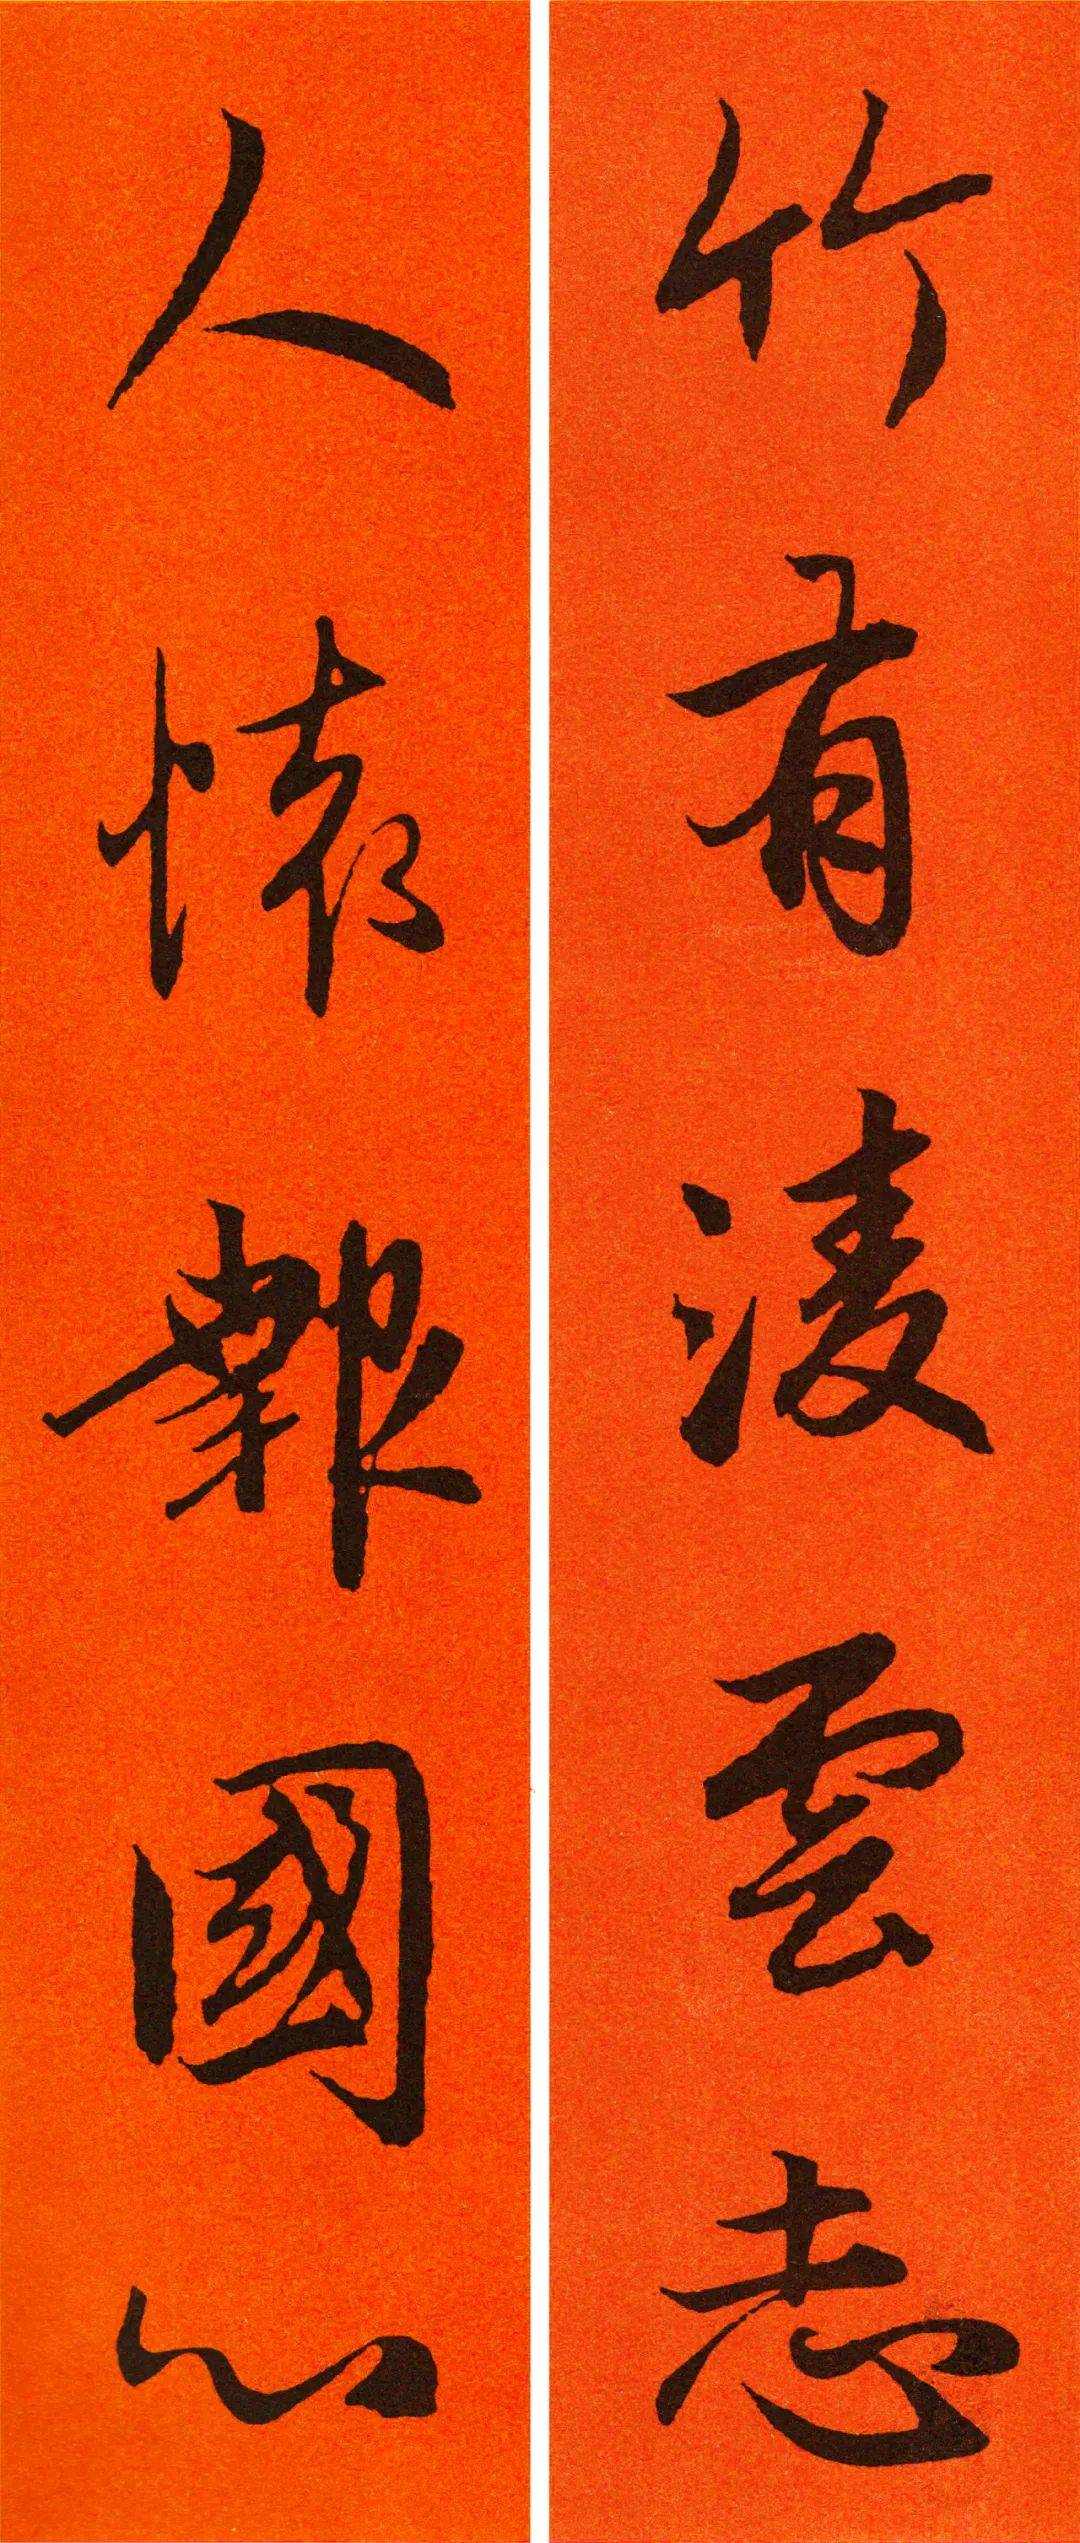 竹有凌雲志
人懷報國心